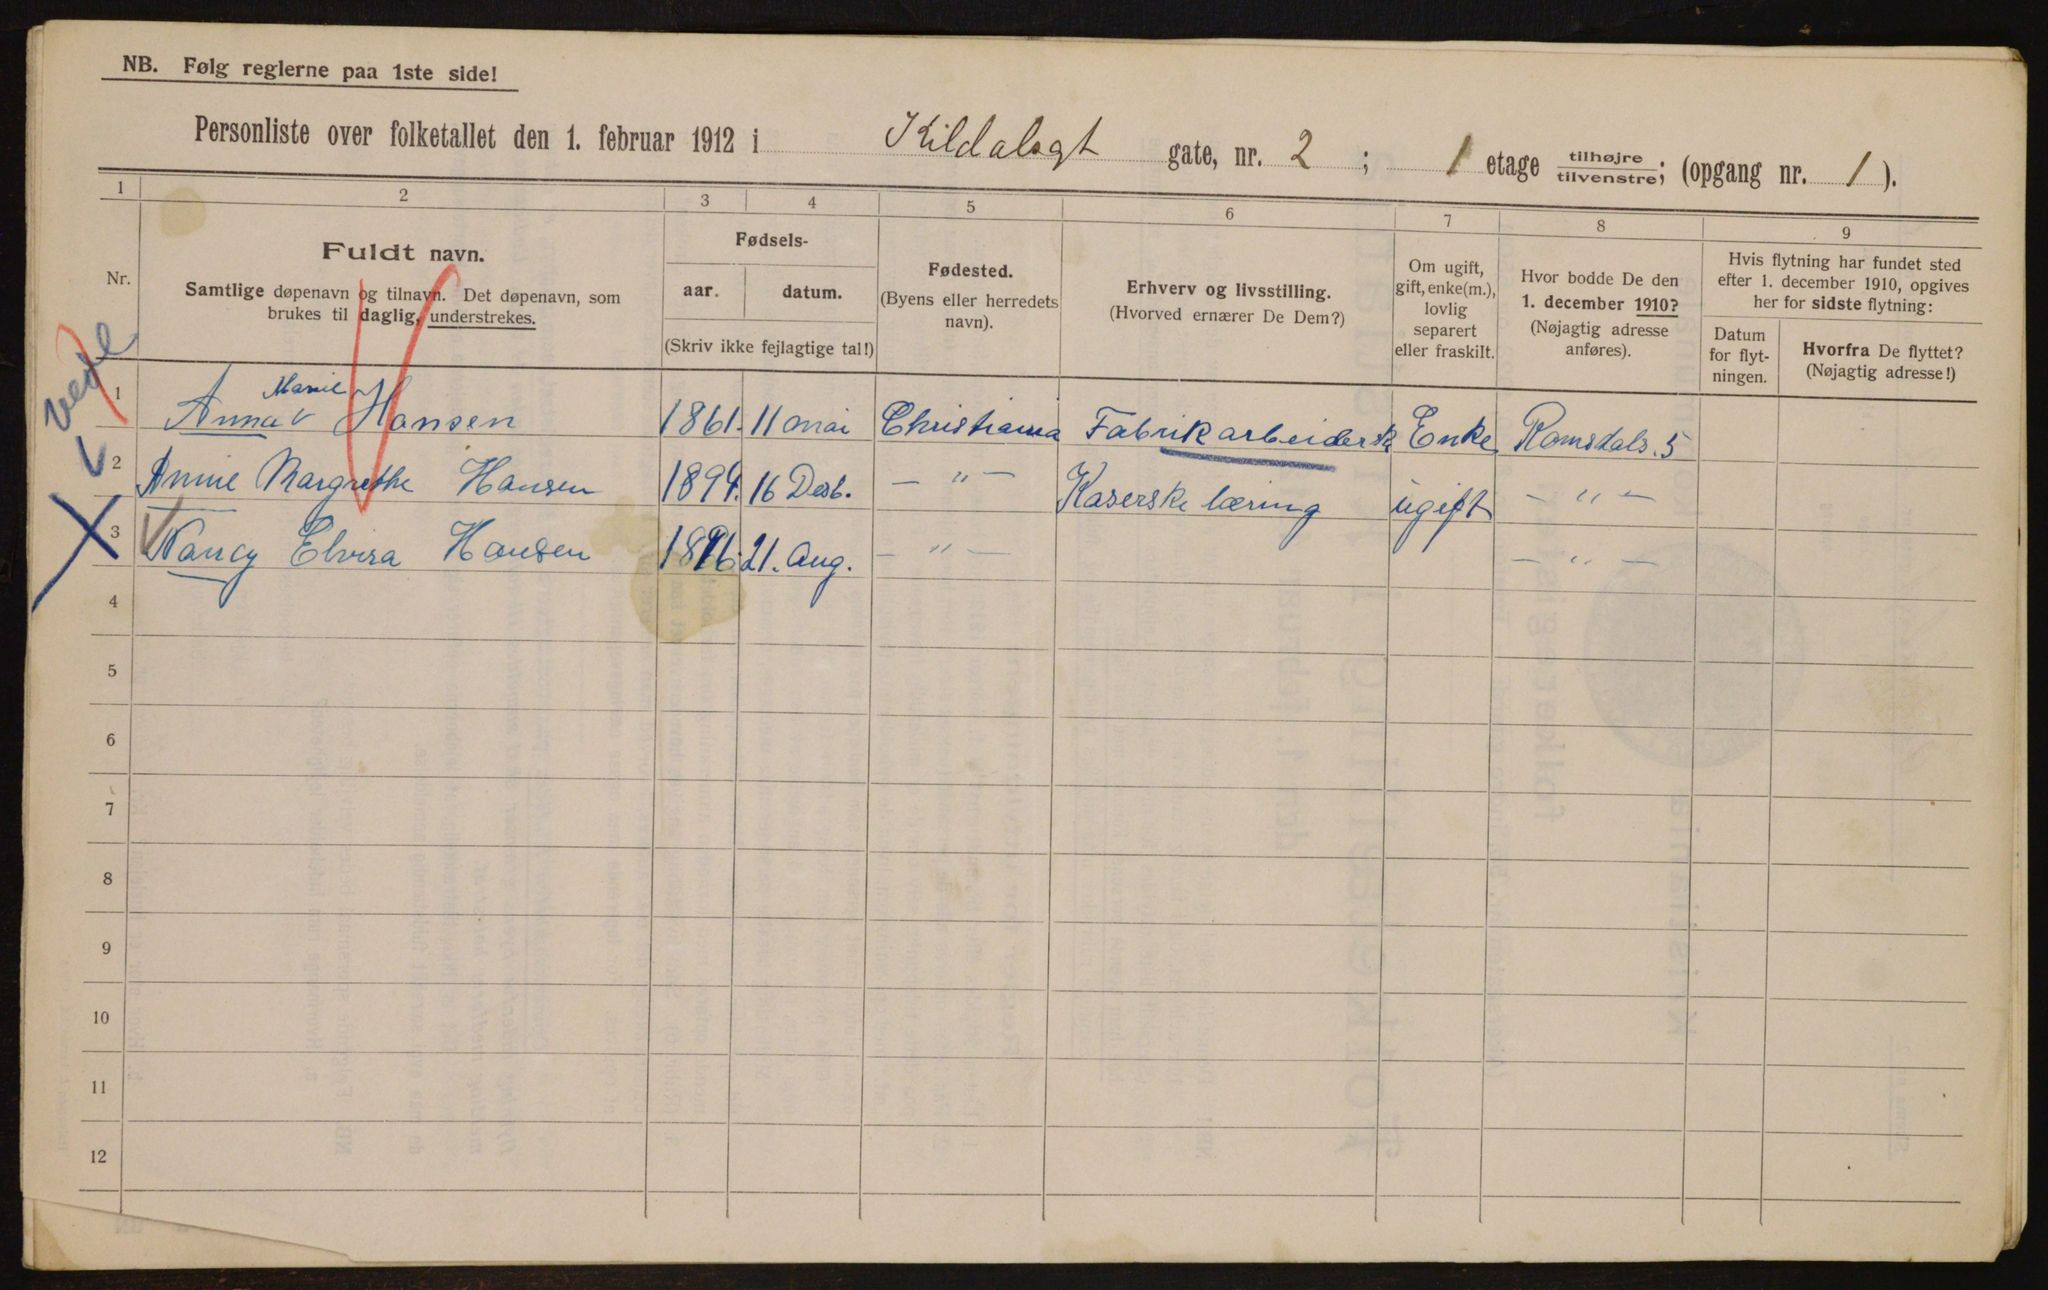 NB. Følg reglerne paa 1ste side!
Personliste over folketallet den 1. februar 1912 i Kildalsgt gate, nr. 2 ; 1 etage tilhøjre tilvenstre; (opgang nr. 1 ).
1 2 3 4 5 6 7 8 9
Nr.
Fuldt navn.
Samtlige døpenavn og tilnavn. Det døpenavn, som
brukes til daglig, understrekes.
Fødsels-
aar. datum.
(Skriv ikke fejlagtige tal!)
Fødested.
(Byens eller herredets
navn).
Erhverv og livsstilling.
(Hvorved ernærer De Dem?)
Om ugift,
gift, enke(m.),
lovlig
separert
eller fraskilt.
Hvor bodde De den
1. december 1910?
(Nøjagtig adresse
anføres).
Hvis flytning har fundet sted
efter 1. december 1910, opgives
her for sidste flytning:
Datum
for flyt-
ningen.
Hvorfra De flyttet?
(Nøjagtig adresse!)
1 Anna Marie Hansen 1861. 11 mai Christiania Fabrikarbeidersk Enke Romsdals. 5
2 Annie Margrethe Hansen 1894. 16 Desb. — " — Kaserske læring ugift — " —
3 Nancy Elvira Hansen 1896. 21. Aug. — " — — " —
4
5
6
7
8
9
10
11
12